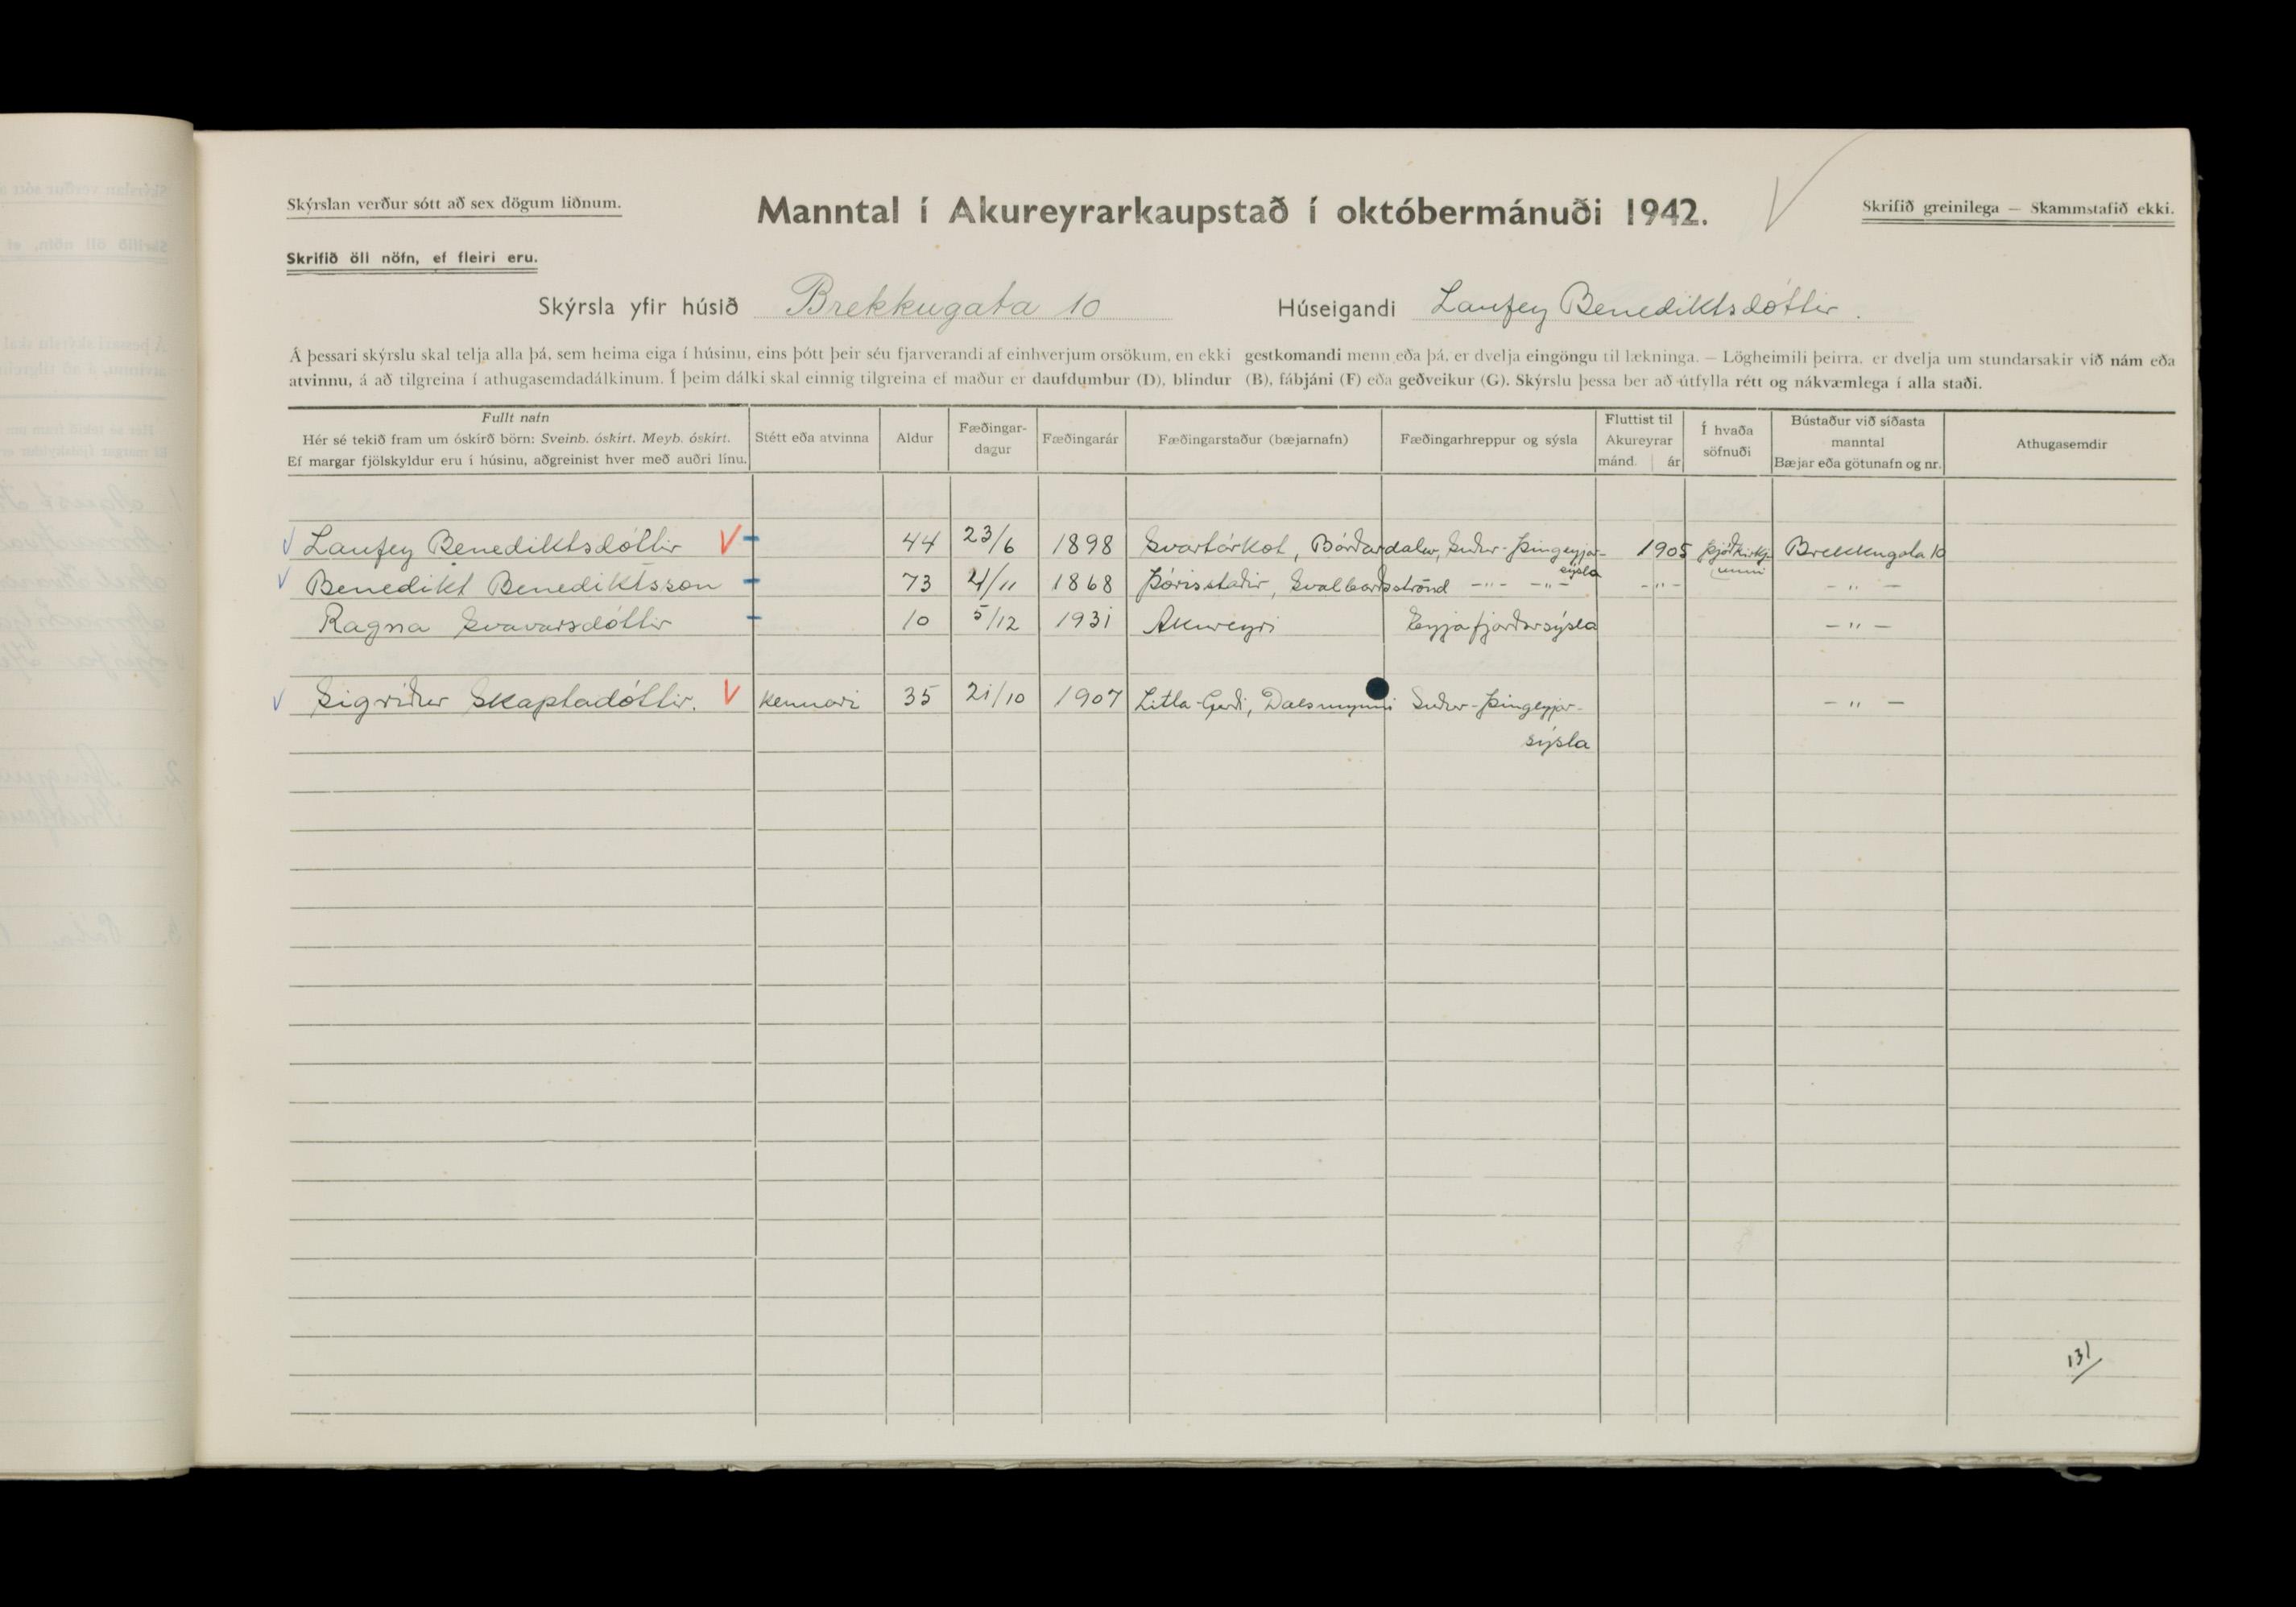 Skýrslan verður sótt að sex dögum liðnum.
Manntal í Akureyrarkaupstað í októbermánuði 1942.
Skrifið greinilega — Skammstafið ekki.
Skrifið öll nöfn, ef fleiri eru.
Skýrsla yfir húsið Brekkugata 10 Húseigandi Laufey Benediktsdóttir.
Á þessari skýrslu skal telja alla þá, sem heima eiga í húsinu, eins þótt þeir séu fjarverandi af einhverjum orsökum, en ekki gestkomandi menn eða þá, er dvelja eingöngu til lækninga. — Lögheimili þeirra, er dvelja um stundarsakir við nám eða
atvinnu, á að tilgreina í athugasemdadálkinum. Í þeim dálki skal einnig tilgreina ef maður er daufdumbur (D), blindur (B), fábjáni (F) eða geðveikur (G). Skýrslu þessa ber að útfylla rétt og nákvæmlega í alla staði.
Fullt nafn
Hér sé tekið fram um óskírð börn: Sveinb. óskírt. Meyb. óskírt.
Ef margar fjölskyldur eru í húsinu, aðgreinist hver með auðri línu.
Stétt eða atvinna
Aldur
Fæðingar-
dagur
Fæðingarár
Fæðingarstaður (bæjarnafn)
Fæðingarhreppur og sýsla
Fluttist til
Akureyrar
mánd. ár
Í hvaða
söfnuði
Bústaður við síðasta
manntal
Bæjar eða götunafn og nr.
Athugasemdir
Laufey Benediktsdóttir 44 23/6 1898 Svartárkot, Bárðardalur, Suður-Þingeyjar- 1905 Þjóðkirkj- Brekkugata 10
sýsla unni
Benedikt Benediktsson 73 4/11 1868 Þórisstaðir, Svalbarðsströnd -"- -"- -"- -"-
Ragna Svavarsdóttir 10 5/12 1931 Akureyri Eyjafjarðarsýsla -"-
Sigríður Skaptadóttir. Kennari 35 21/10 1907 Litla-Gerði, Dalsmynni Suður-Þingeyjar- -"-
sýsla
131